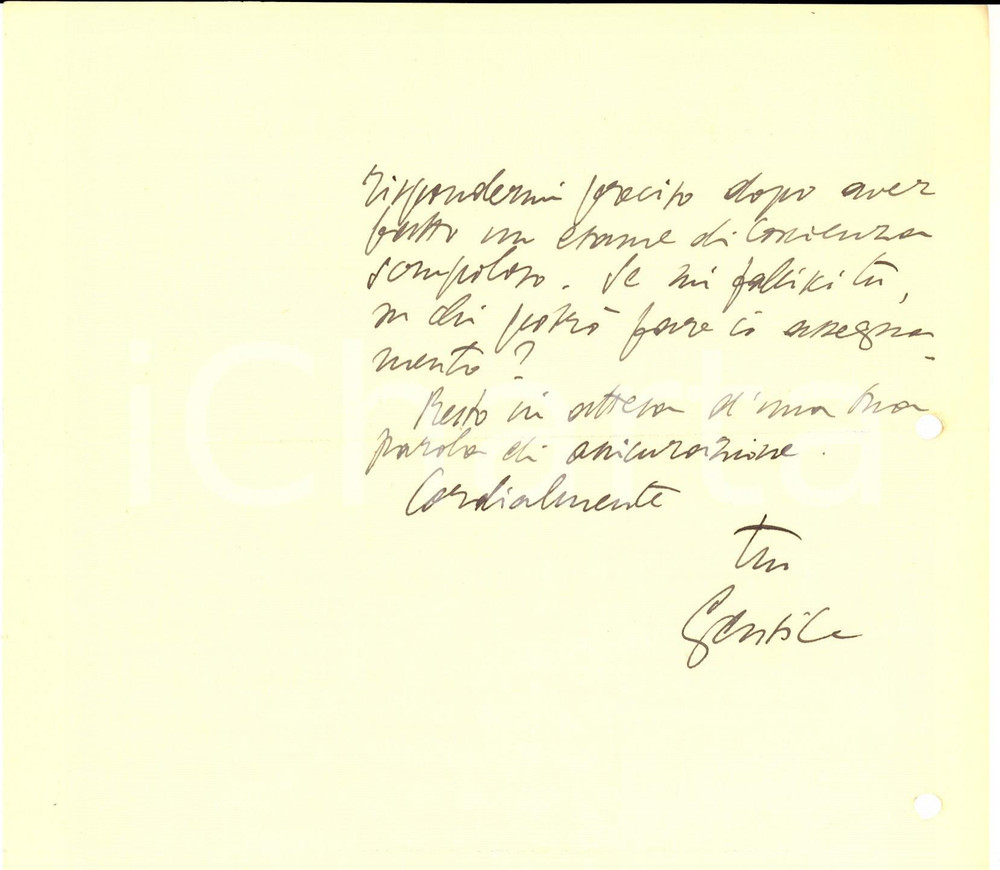 rispondermi preciso dopo aver
fatto un esame di coscienza
scrupoloso. Se mi fallisci tu,
su chi potrò fare io assegna-
mento?
Resto in attesa d'una tua
parola di assicurazione.
Cordialmente
tuo
Gentile
iCharta